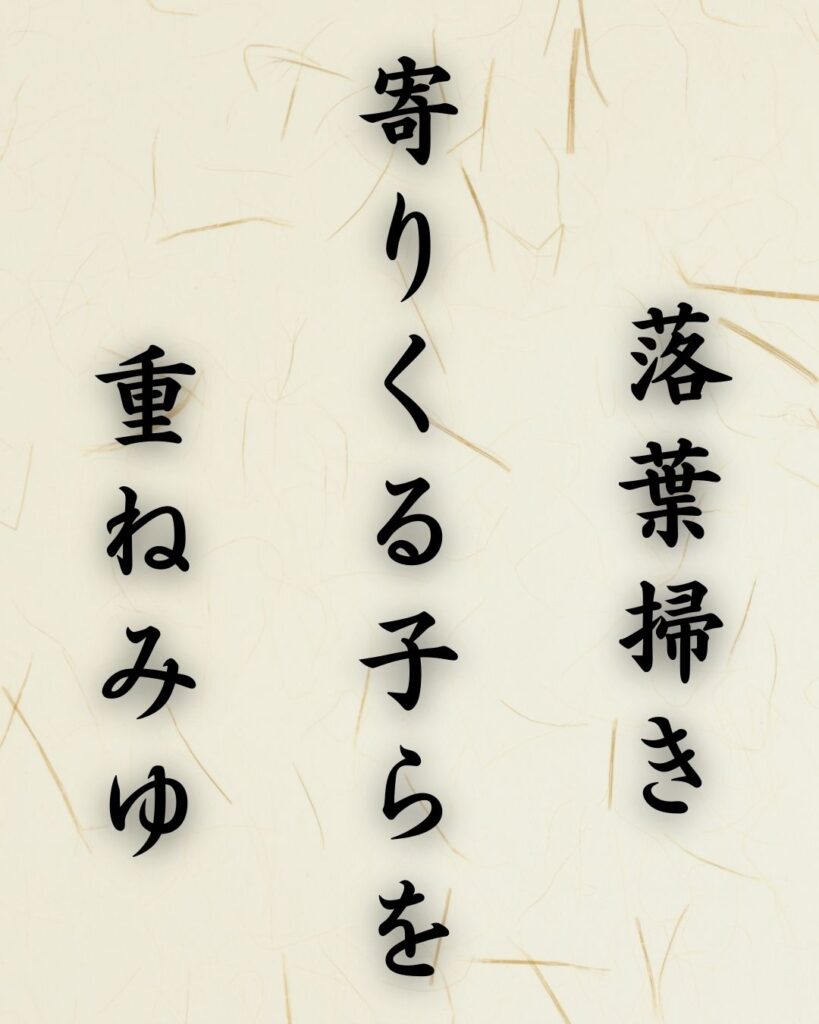 落葉掃き
寄りくる子らを
重ねみゆ